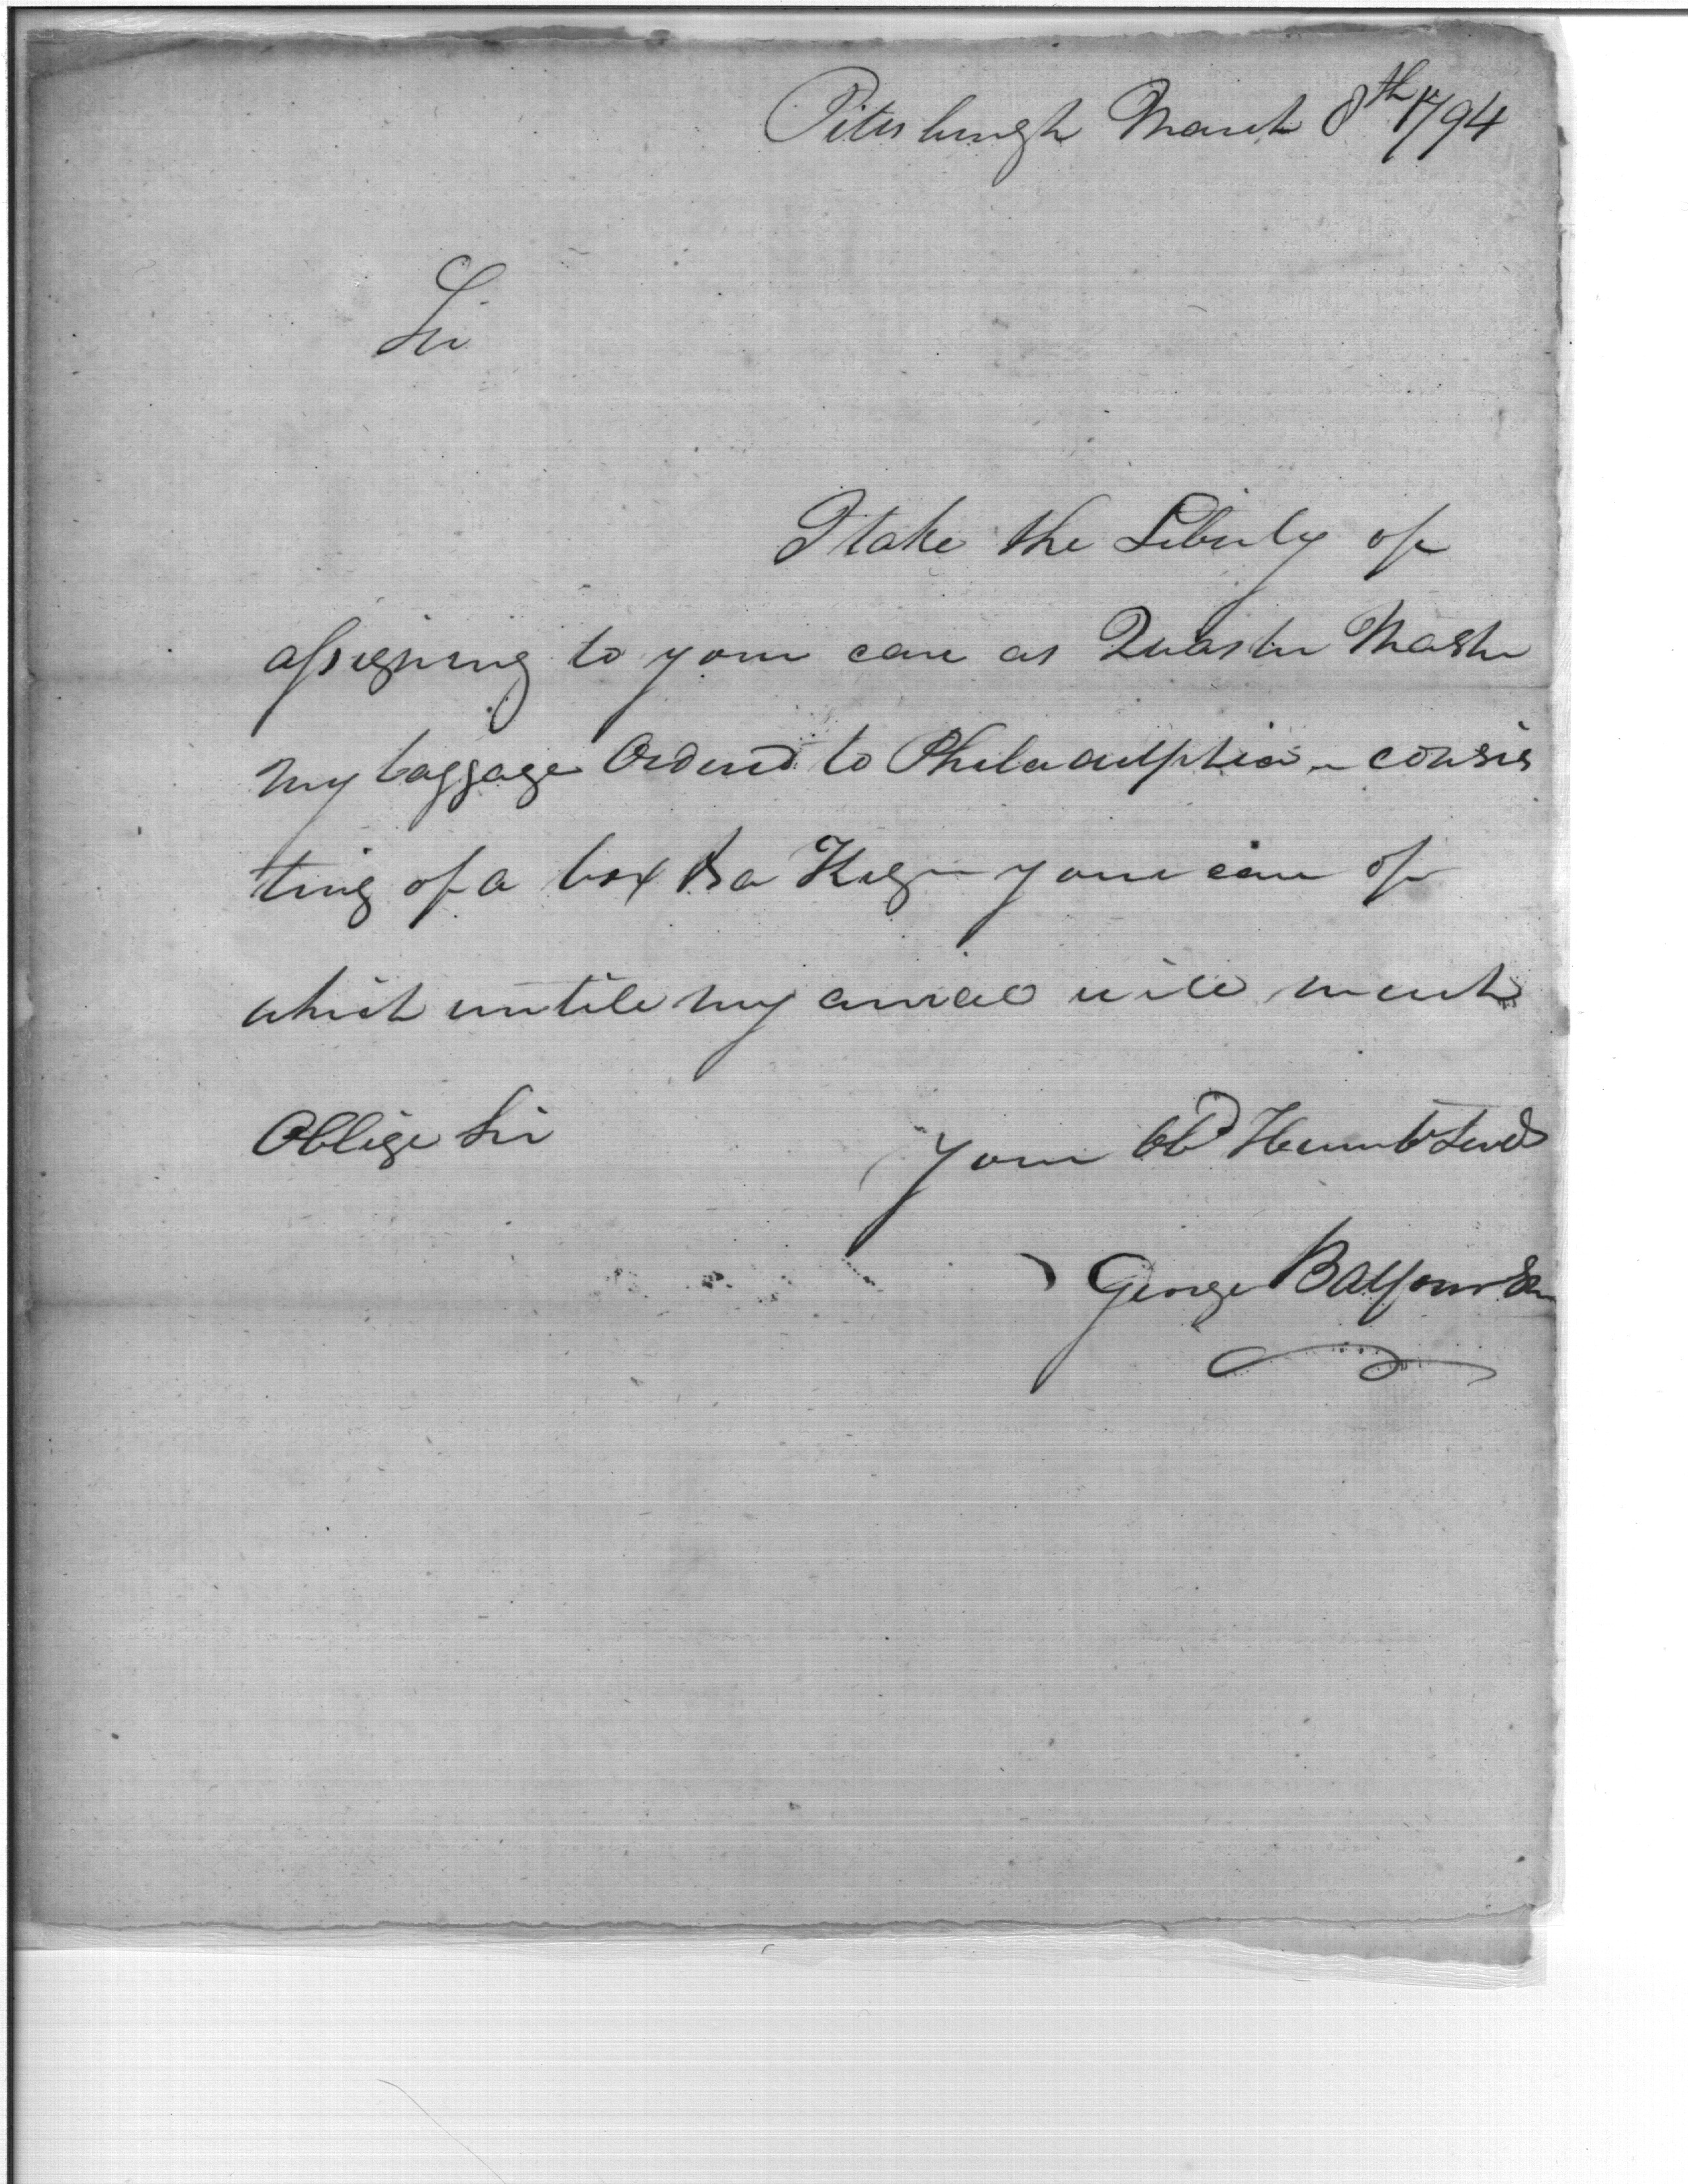 Pittsburgh March 8th 1794
Sir
I take the Liberty of
assigning to your care as Quarter Master
my baggage Ordered to Philadelphia - consis
ting of a box & a Keg - your care of
which untill my arival will much
Oblige Sir
Your Obd Humb Servt
George Balfour